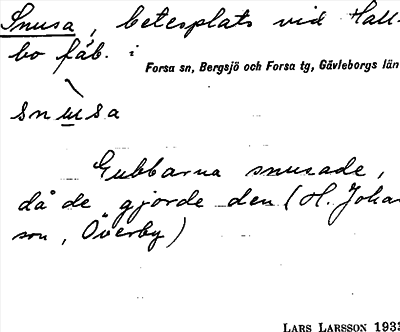 Snusa, betesplats vid Hall-
bo fäb. i
Forsa sn, Bergsjö och Forsa tg, Gävleborgs län
snusa
Gubbarna snusade,
då de gjorde den (H. Johan
son, Överby)
LARS LARSSON 1933